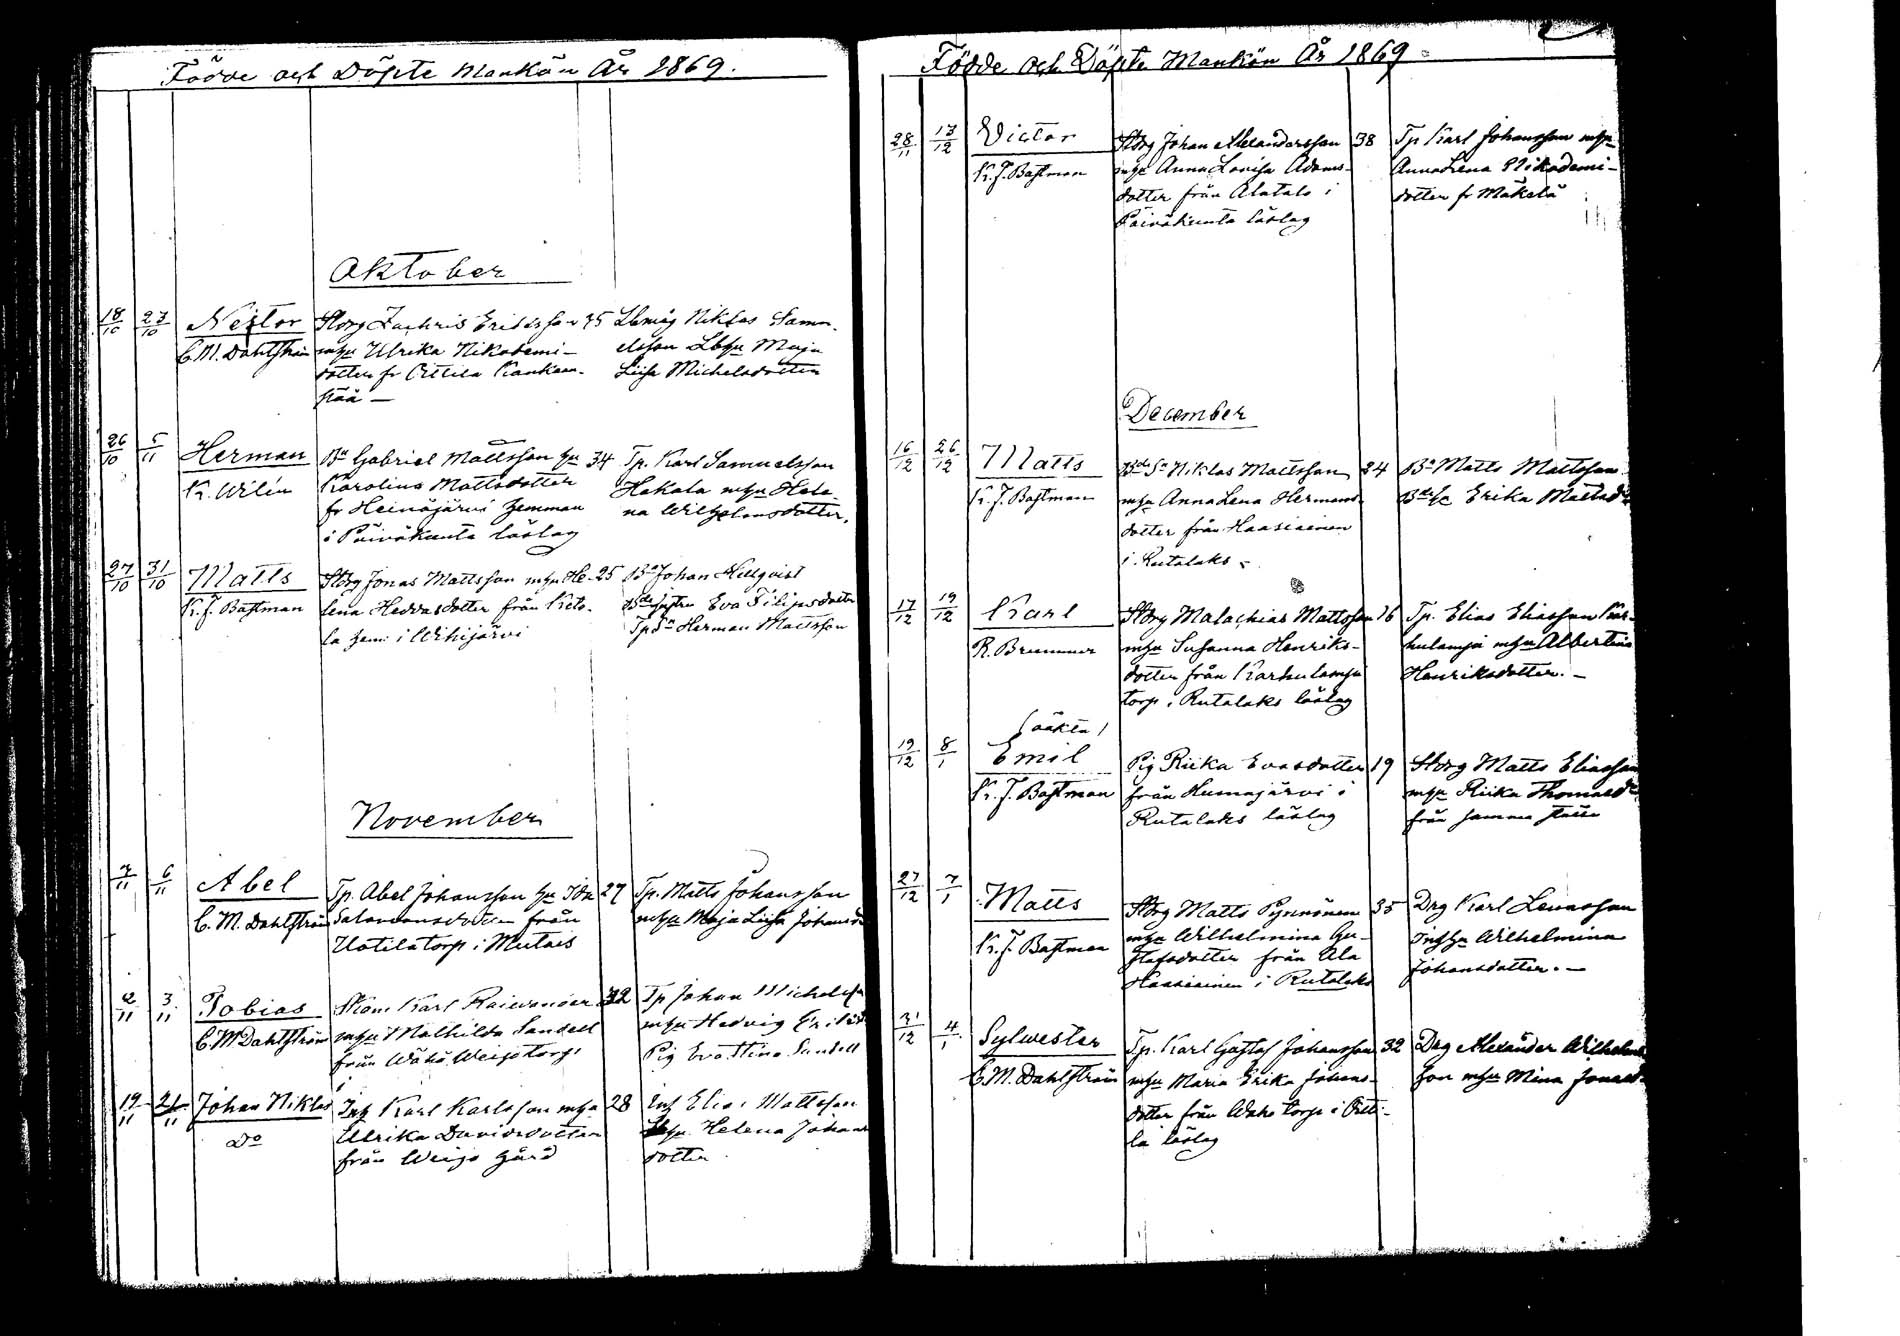 Födde och Döpte Mankön År 1869.
Oktober
18/10 23/10 Nestor
C. M. Dahlström
Storg Zachris Ericksson 35
mhu Ulrika Nikodemi-
dotter fr Oittila Kankaan-
pää —
Niklas Samu-
elsson Maja
Liisa Michelsdotter
26/10 5/11 Herman
K. Wilén
Bn Gabriel Mattsson hu 34
Karolina Mattsdotter
fr Heinäjärvi hemman
i Päiväkunta läslag
Tp. Karl Samuelsson
Hakala mhu Hele-
na Wilhelmsdotter.
27/10 31/10 Matts
K. J. Bastman
Storg Jonas Mattsson mhu He- 25
lena Hedvasdotter från Keto-
la hem: i Wihijärvi
Bn Johan Hellqvist
Eva Filipsdotter
Tp Sn Herman Mattsson
November
2/11 6/11 Abel
C. M. Dahlström
Tp. Abel Johansson hu Ida 27
Salomonsdotter från
Uotila torp i Mutais
Tp. Matts Johansson
mhu Maja Liisa Johansd
2/11 3/11 Tobias
C. M Dahlström
Skom. Karl Raivander 32
mhu Mathilda Sandell
från Wähä Weijo torp
i
Tp Johan Michelss
mhu Hedvig Eriksd
Pig Eva Stina Sandell
19/11 21/11 Johan Niklas
Do
Inh Karl Karlsson mhu 28
Ulrika Davidsdotter
från Weijo gård
Inh Elias Mattsson
Helena Johans
dotter
Födde och Döpte Mankön År 1869
28/11 13/12 Victor
K. J. Bastman
Storg Johan Alexandersson 38
mhu Anna Lovisa Adams-
dotter från Alatalo i
Päiväkunta läslag
Tp Karl Johansson mhu
Anna Lena Nikodemi-
dotter fr Mäkelä
December
16/12 26/12 Matts
K. J. Bastman
Bde Sn Niklas Mattsson 24
mhu Anna Lena Hermans-
dotter från Haasiainen
i Rutalaks
Bn Matts Mattsson
Erika Mattsdr
17/12 19/12 Karl
R. Brummer
Storg Malachias Mattsson 16
mhu Susanna Henriks-
dotter från Karhulampi
torp i Rutalaks läslag
Tp. Elias Eliasson Kar-
hulampi mhu Albertina
Henriksdotter. —
(oäkta)
19/12 8/1 Emil
K. J. Bastman
Pig Riika Evasdotter 19
från Humajärvi i
Rutalaks läslag
Storg Matts Eliasson
mhu Riika Thomasdr
från samma ställe
27/12 7/1 Matts
K. J. Bastman
Storg Matts Pynnönen 35
mhu Wilhelmina Gu-
stafsdotter från Ala
Haasiainen i Rutalaks
Drg Karl Lenasson
Inhhu Wilhelmina
Johansdotter. —
31/12 4/1 Sylwester
C. M. Dahlström
Tp. Karl Gustaf Johansson 32
mhu Maria Erika Johans-
dotter från Waho torp i Oitti-
la läslag
Drg Alexander Wilhelms
son mhu Mina Jonasd.